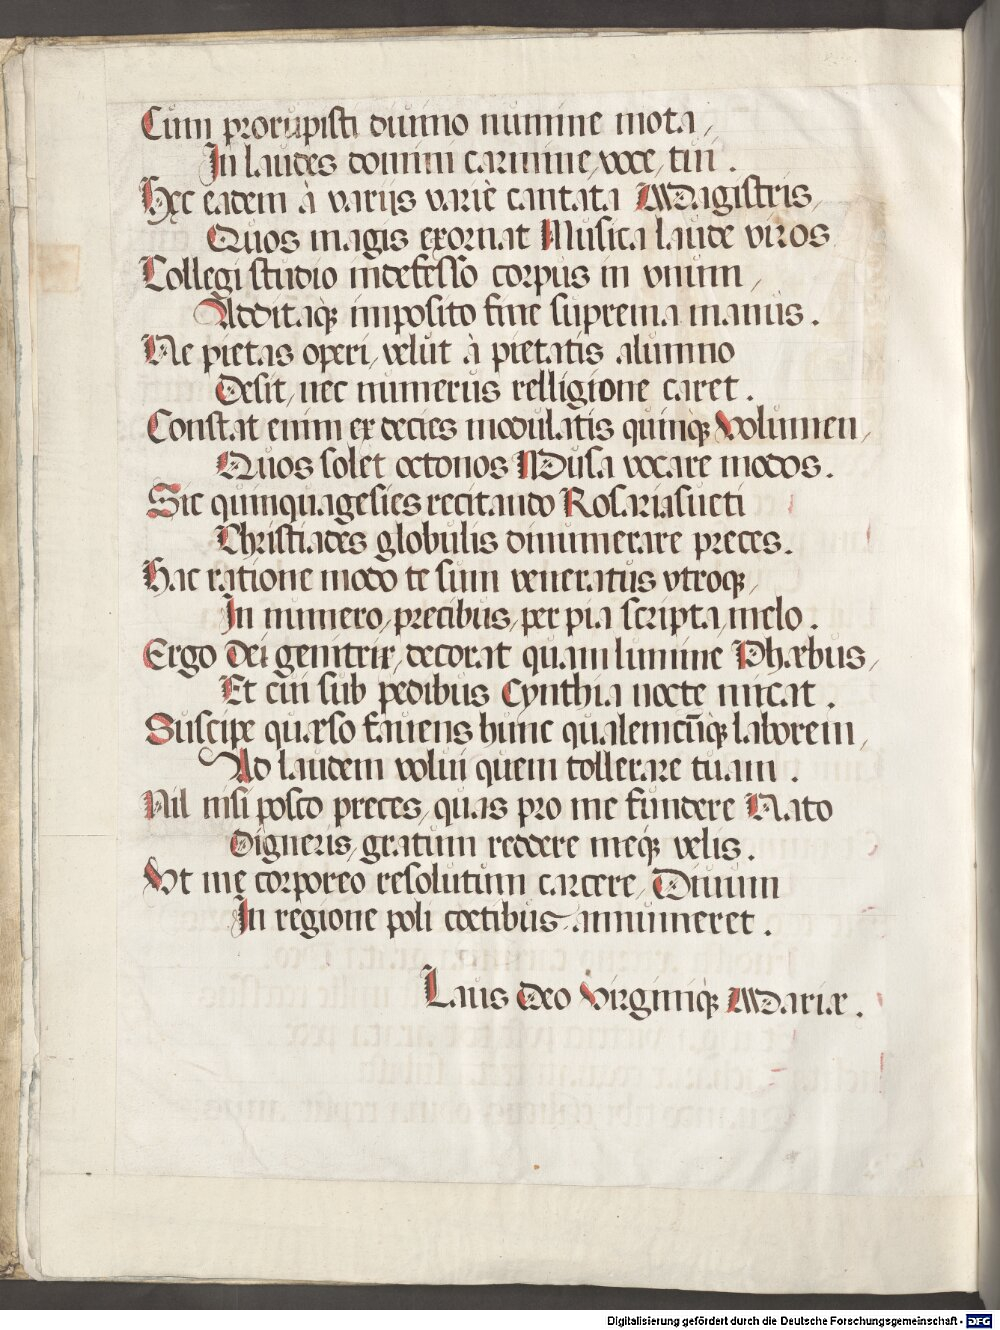 Cum prorupisti diuino numine mota,
In laudes domini carmine, voce, tui.
Hęc eadem à variis variè cantata Magistris,
Quos magis exornat Musica laude viros
Collegi studio indefesso corpus in vnum,
Additaq́; imposito fine suprema manus.
Ne pietas operi, velut à pietatis alumno
Desit, nec numerus relligione caret.
Constat enim ex decies modulatis quinq́; volumen,
Quos solet octonos Musa vocare modos.
Sic quinquagesies recitando Rosaria sueti
Christiades globulis dinumerare preces.
Hac ratione modo te sum veneratus vtroq́;,
In numero, precibus, per pia scripta, melo.
Ergo Dei genitrix, decorat quam lumine Phæbus,
Et cui sub pedibus Cynthia nocte micat.
Suscipe quæso fauens hunc qualemcūq́; laborem,
Ad laudem volui quem tollerare tuam.
Nil nisi posco preces, quas pro me fundere Nato
Digneris, gratum reddere meq́; velis.
Vt me corporeo resolutum carcere, Diuum
In regione poli cœtibus annumeret.
Laus deo Virginiq́; Mariæ.
Digitalisierung gefördert durch die Deutsche Forschungsgemeinschaft - DFG